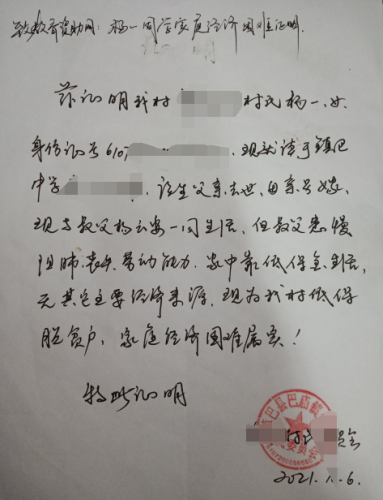 致教育资助网：杨一同学家庭经济困难证明
兹证明我村 村民杨一，女
身份证号610 ，现就读于镇巴
中学 ，该生父亲去世，母亲另嫁，
现与叔父杨云安一同生活，但叔父患慢
阻肺，丧失劳动能力，家中靠低保金生活，
无其它主要经济来源，现为我村低保
脱贫户，家庭经济困难属实！
特此证明
巴县巴庙镇
委员会
2021.1.6.